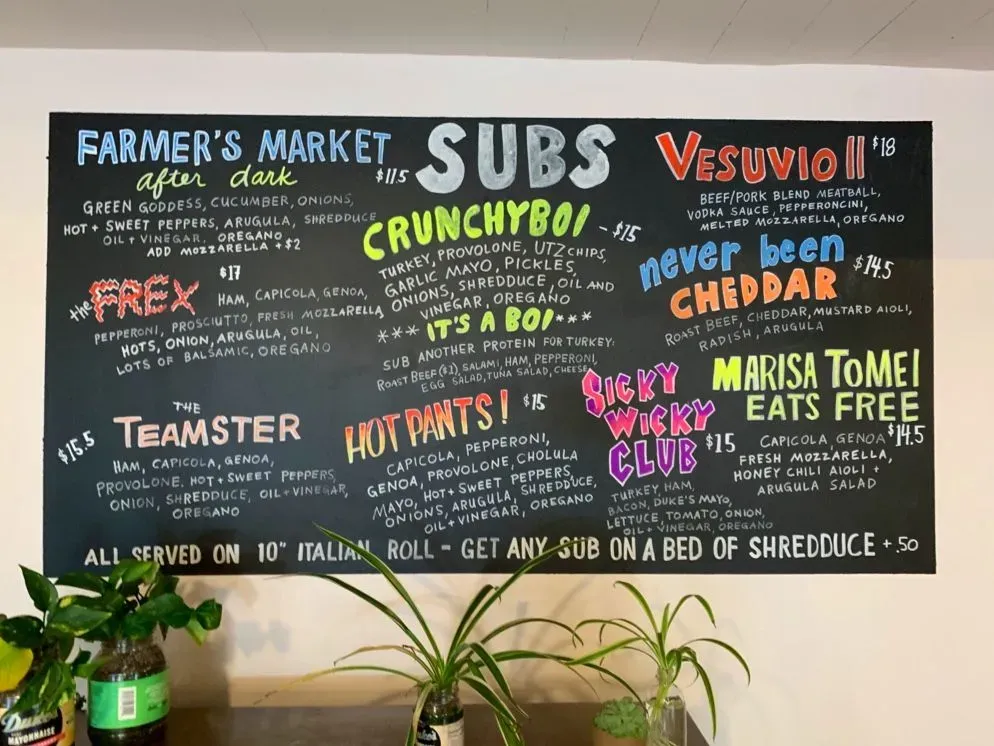 SUBS
FARMER'S MARKET
after dark
$11.5
GREEN GODDESS, CUCUMBER, ONIONS,
HOT + SWEET PEPPERS, ARUGULA, SHREDDUCE
OIL + VINEGAR, OREGANO
ADD MOZZARELLA +$2
the FREX
$17
HAM, CAPICOLA, GENOA,
PEPPERONI, PROSCIUTTO, FRESH MOZZARELLA
HOTS, ONION, ARUGULA, OIL,
LOTS OF BALSAMIC, OREGANO
THE
TEAMSTER
$15.5
HAM, CAPICOLA, GENOA,
PROVOLONE, HOT + SWEET PEPPERS,
ONION, SHREDDUCE, OIL + VINEGAR,
OREGANO
CRUNCHYBOI - $15
TURKEY, PROVOLONE, UTZ CHIPS,
GARLIC MAYO, PICKLES,
ONIONS, SHREDDUCE, OIL AND
VINEGAR, OREGANO
*** IT'S A BOI ***
SUB ANOTHER PROTEIN FOR TURKEY:
ROAST BEEF ($1), SALAMI, HAM, PEPPERONI,
EGG SALAD, TUNA SALAD, CHEESE
HOT PANTS! $15
CAPICOLA, PEPPERONI,
GENOA, PROVOLONE, CHOLULA
MAYO, HOT + SWEET PEPPERS,
ONIONS, ARUGULA, SHREDDUCE,
OIL + VINEGAR, OREGANO
VESUVIO II $18
BEEF/PORK BLEND MEATBALL,
VODKA SAUCE, PEPPERONCINI,
MELTED MOZZARELLA, OREGANO
never been
CHEDDAR
$14.5
ROAST BEEF, CHEDDAR, MUSTARD AIOLI,
RADISH, ARUGULA
SICKY
WICKY
CLUB $15
TURKEY, HAM,
BACON, DUKE'S MAYO,
LETTUCE, TOMATO, ONION,
OIL + VINEGAR, OREGANO
MARISA TOMEI
EATS FREE
$14.5
CAPICOLA, GENOA
FRESH MOZZARELLA,
HONEY CHILI AIOLI +
ARUGULA SALAD
ALL SERVED ON 10" ITALIAN ROLL - GET ANY SUB ON A BED OF SHREDDUCE +.50
Duke's
MAYONNAISE